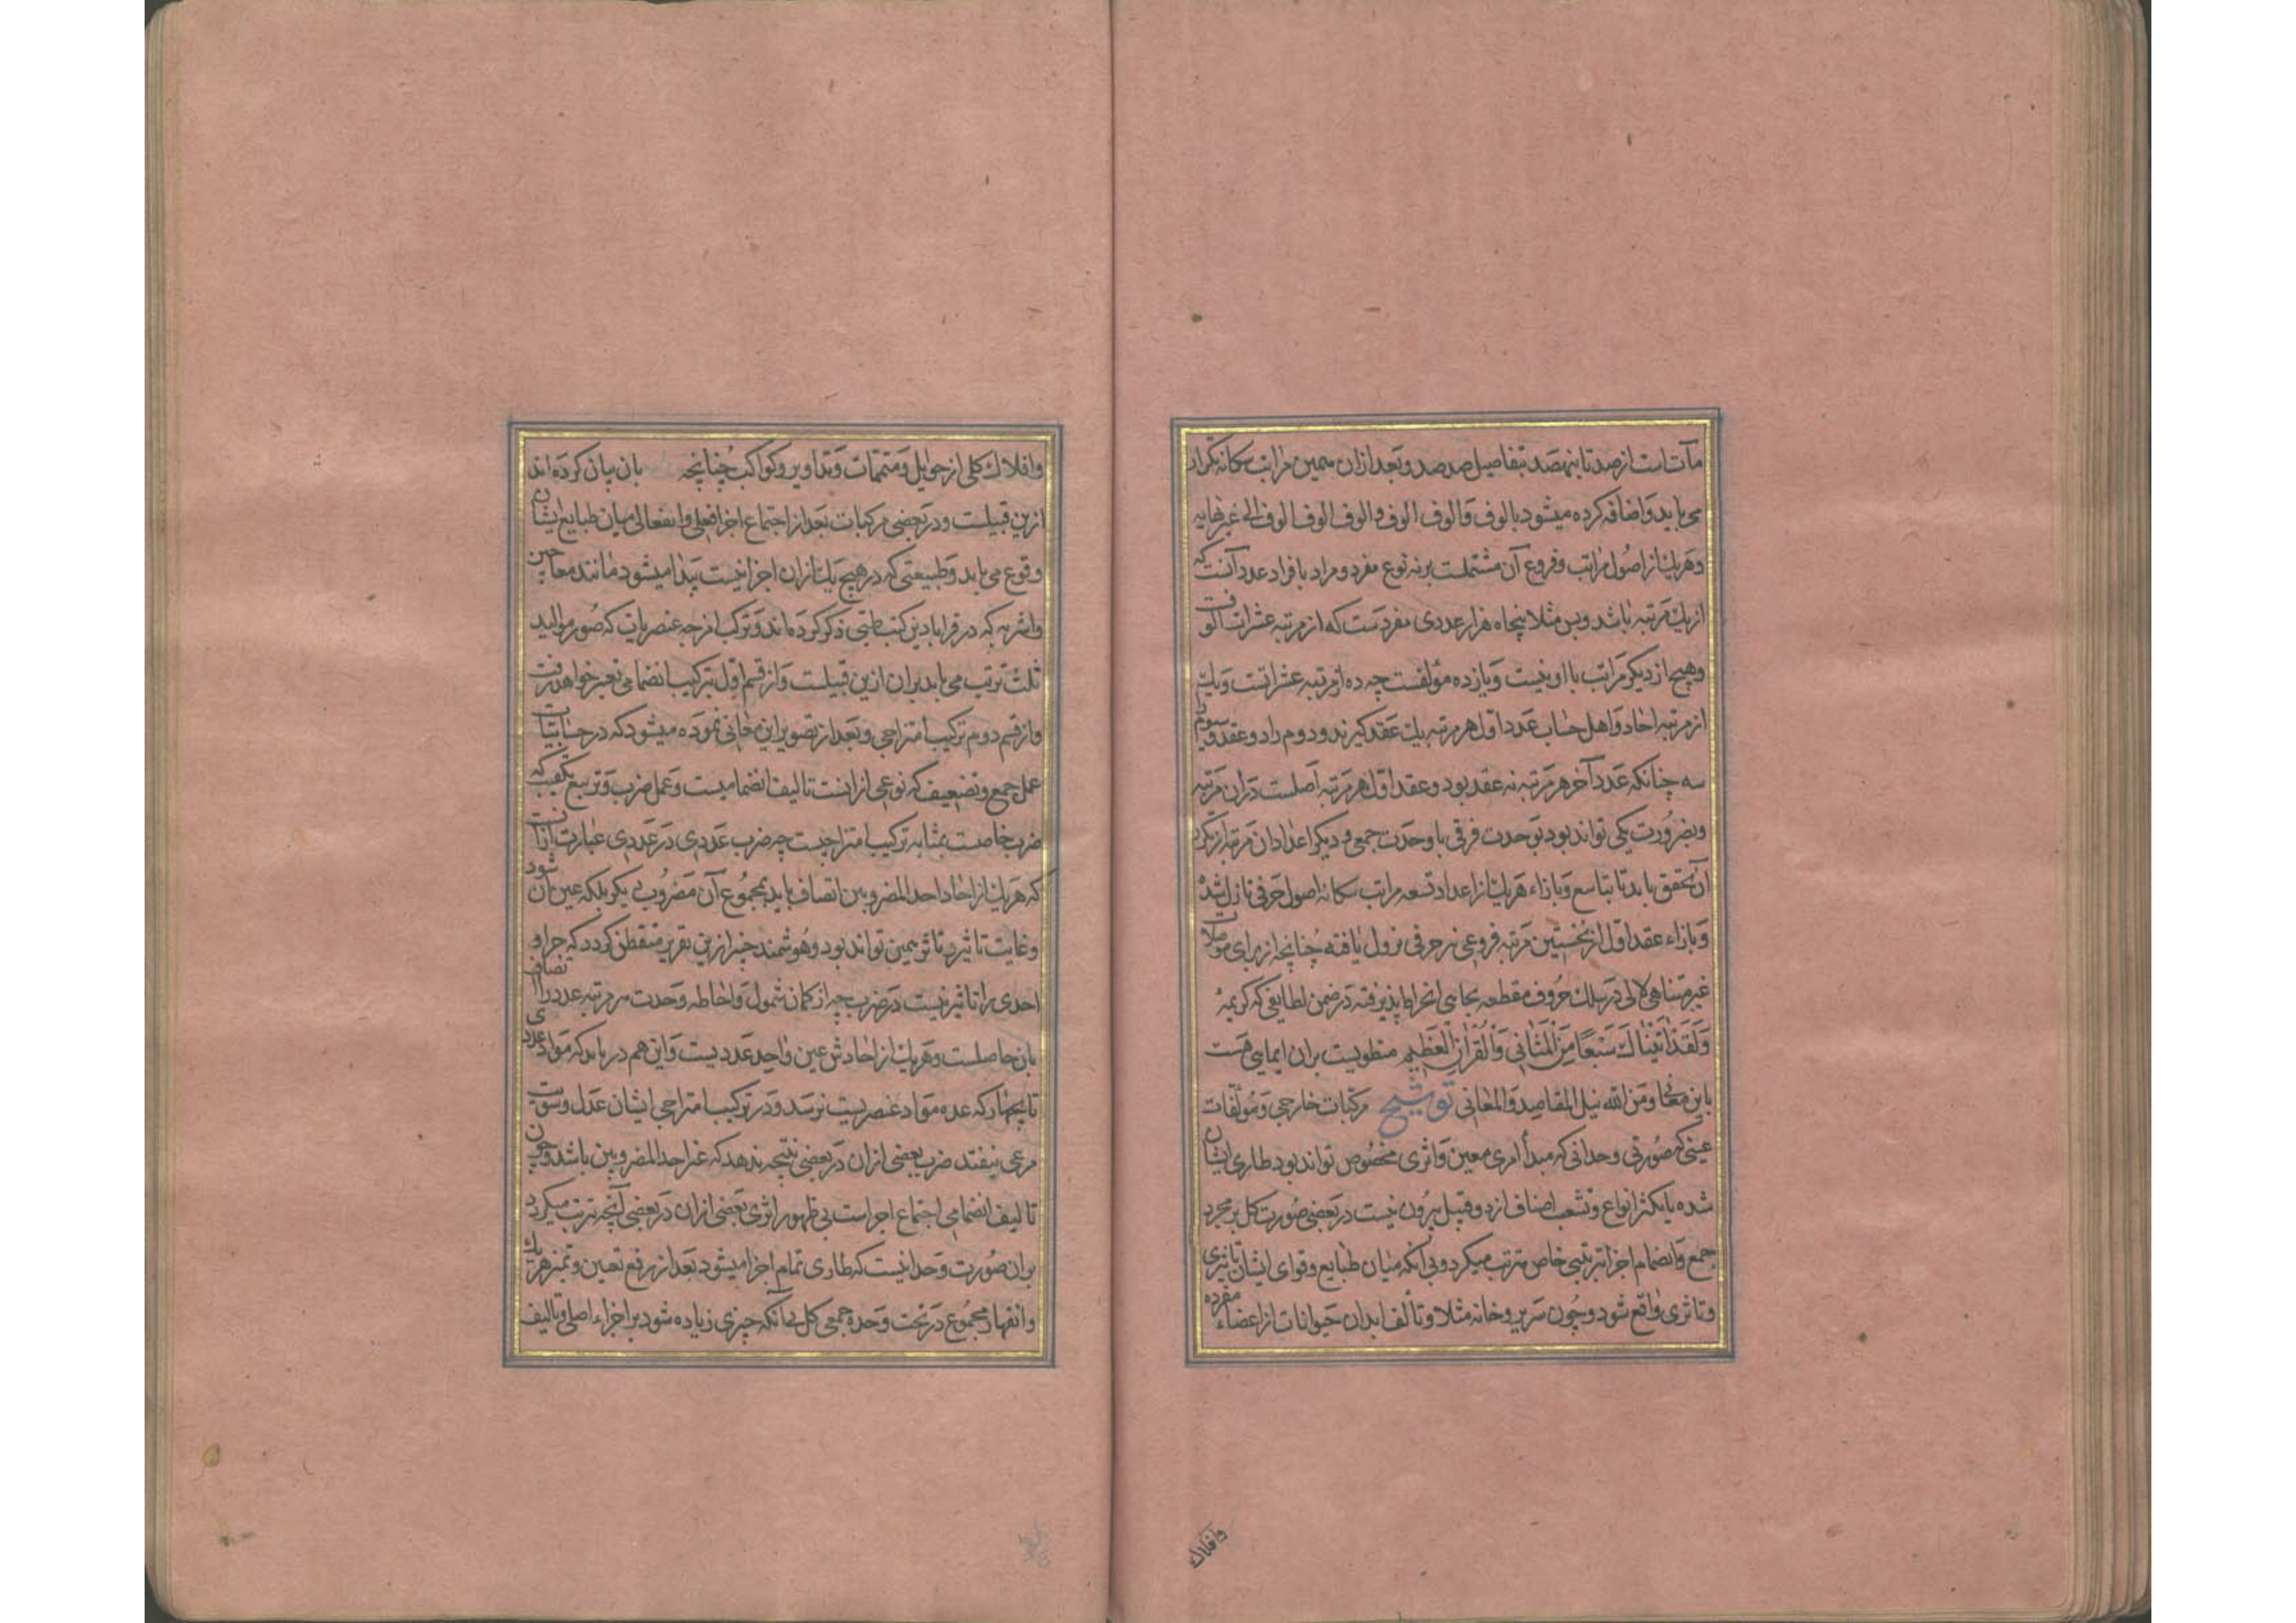 مآت است از صد تا نهصد بتفاصیل صد صد و بعد ازان همین مراتب سکانه تکرار
می یابد و اضافه کرده میشود بالوف و الوف الوف و الوف الوف الوف الی غیر نهایه
و هریک از اصول مراتب و فروع آن مشتملست بر نه نوع مفرد و مراد بافراد عدد آنست که
از یک مرتبه باشد و بس مثلا پنجاه هزار عددی مفردست که از مرتبه عشرات الوفست
و هیچ از دیگر مراتب با او نیست و یازده مؤلفست چه ده از مرتبه عشراتست و یک
از مرتبه احاد و اهل حساب عدد اول هر مرتبه یک عقد گیرند و دوم را دو عقد و سوم را
سه چنانکه عدد آخر هر مرتبه نه عقد بود و عقد اول هر مرتبه اصلست دران مرتبه
و بضرورت یکی تواند بود بوحدت فرقی یا وحدت جمعی و دیگر اعداد ان مرتبه از تکرر
آن تحقق یابد تا بتاسع و بازاء هریک از اعداد تسعه مراتب سکانه اصول حرفی نازل شده
و بازاء عقد اول از نخستین مرتبه فروعی نیز حرفی نزول یافته چنانچه از برای موصلات
غیر متناهی لالی در سلک حروف مقطعه بجایی انخراط پذیرفته در ضمن لطایفی که کریمهٔ
وَلَقَدْ آتَيْنَاكَ سَبْعًا مِنَ الْمَثَانِي وَالْقُرْآنَ الْعَظِيمَ منطویست بران ایمایی هست
باین معنا و من الله نیل المقاصد و المعانی توشیح مرکبات خارجی و مؤلفات
عینی که صورتی وحدانی که مبدأ امری معین و اثری مخصوص تواند بود طاری ایشان
شده با تکثر انواع و تشعب اصناف از دو قبیل بیرون نیست در بعضی صورت کل بر مجرد
جمع و انضمام اجزا بترتیبی خاص مترتب میگردد بی آنکه میان طبایع و قوای ایشان تاثیری
و تاثری واقع شود و چون سریر و خانه مثلا و تألف ابدان حیوانات از اعضاء مفرده
وافلاک
وافلاک کلی از حوامل و متممات و تداویر و کواکب چنانچه بان بیان کرده اند
ازین قبیلست و در بعضی مرکبات بعد از اجتماع اجزا فعلی و انفعالی میان طبایع ایشان
وقوع می یابد و طبیعتی که در هیچ یک ازان اجزا نیست پیدا میشود مانند معاجین
و اشربه که در قرابادین کتب طبی ذکر کرده اند و ترکب امزجه عنصریات که صور موالید
ثلث ترتب می یابد بران ازین قبیلست و از قسم اول بترکیب انضمامی تعبیر خواهد رفت
و از قسم دوم ترکیب امتزاجی و بعد از تصویر این معانی نموده میشود که در حسابیات
عمل جمع و تضعیف که نوعی از انست تالیف انضمامیست و عمل ضرب و تربیع تکعیب که
ضرب خاصست بمثابه ترکیب امتزاجیست چه ضرب عددی در عددی عبارت ازانست
که هریک از احاد احد المضروبین اتصاف یابد بمجموع آن مضروب دیگر بلکه عین آن شود
و غایت تاثیر و تاثر همین تواند بود و هوشمند چیز ازین تقریر متفطن گردد که چرا و
احدی را تاثیر نیست در ضرب چه از کمان شمول و احاطه وحدت هر مرتبه عدد را اتصاف
بان حاصلست و هریک از احادش عین واحد عددیست و این هم در یابد که مواد عددی
تا بچهار که عده مواد عنصریست نرسد و در ترکیب امتزاجی ایشان عدل و سویت
مرعی نیفتد ضرب بعضی ازان در بعضی نتیجه ندهد که غیر احد المضروبین باشد و چون
تالیف انضمامی اجتماع اجزاست بی ظهور اثری بعضی ازان در بعضی آنچه ترتب میگردد
بران صورت وحدانیست که طاری تمام اجزا میشود بعد از رفع تعین و تمیز هر یک
و انقهار مجموع در تحت وحده جمعی کل بی آنکه چیزی زیاده شود بر اجزاء اصلی و تالیف